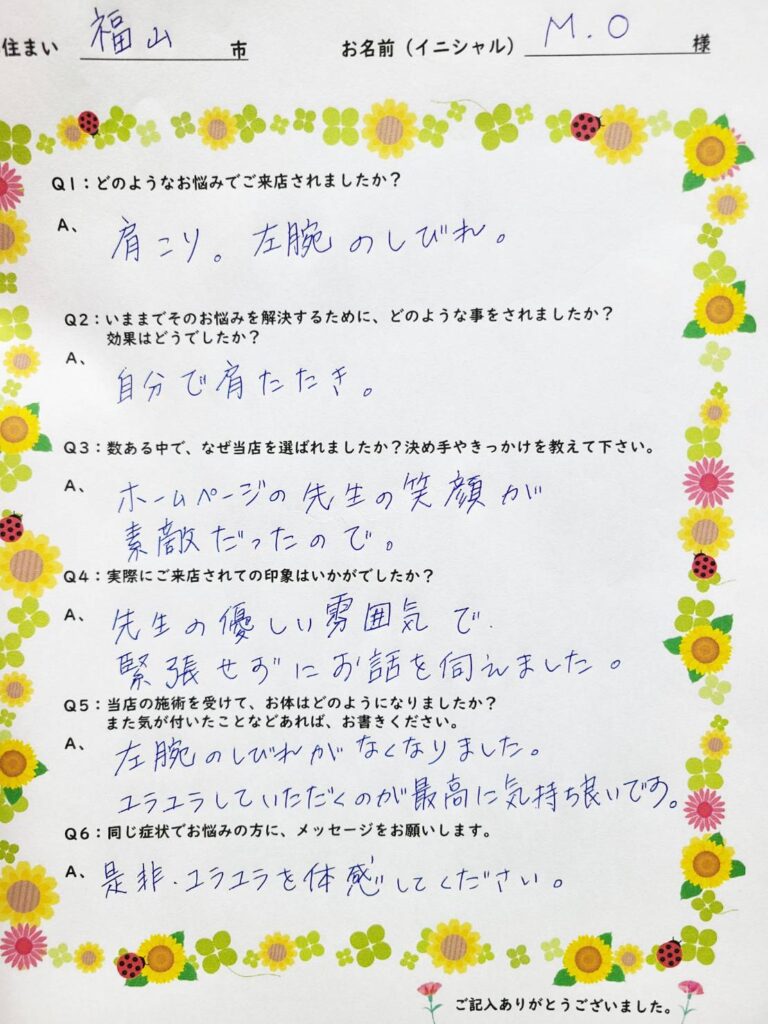 住まい 福山 市 お名前（イニシャル） M.O 様
Q1：どのようなお悩みでご来店されましたか？
A、 肩こり。左腕のしびれ。
Q2：いままでそのお悩みを解決するために、どのような事をされましたか？
効果はどうでしたか？
A、 自分で肩たたき。
Q3：数ある中で、なぜ当店を選ばれましたか？決め手やきっかけを教えて下さい。
A、 ホームページの先生の笑顔が
素敵だったので。
Q4：実際にご来店されての印象はいかがでしたか？
A、 先生の優しい雰囲気で.
緊張せずにお話を伺えました。
Q5：当店の施術を受けて、お体はどのようになりましたか？
また気が付いたことなどあれば、お書きください。
A、 左腕のしびれがなくなりました。
ユラユラしていただくのが最高に気持ち良いです。
Q6：同じ症状でお悩みの方に、メッセージをお願いします。
A、 是非.ユラユラを体感してください。
ご記入ありがとうございました。